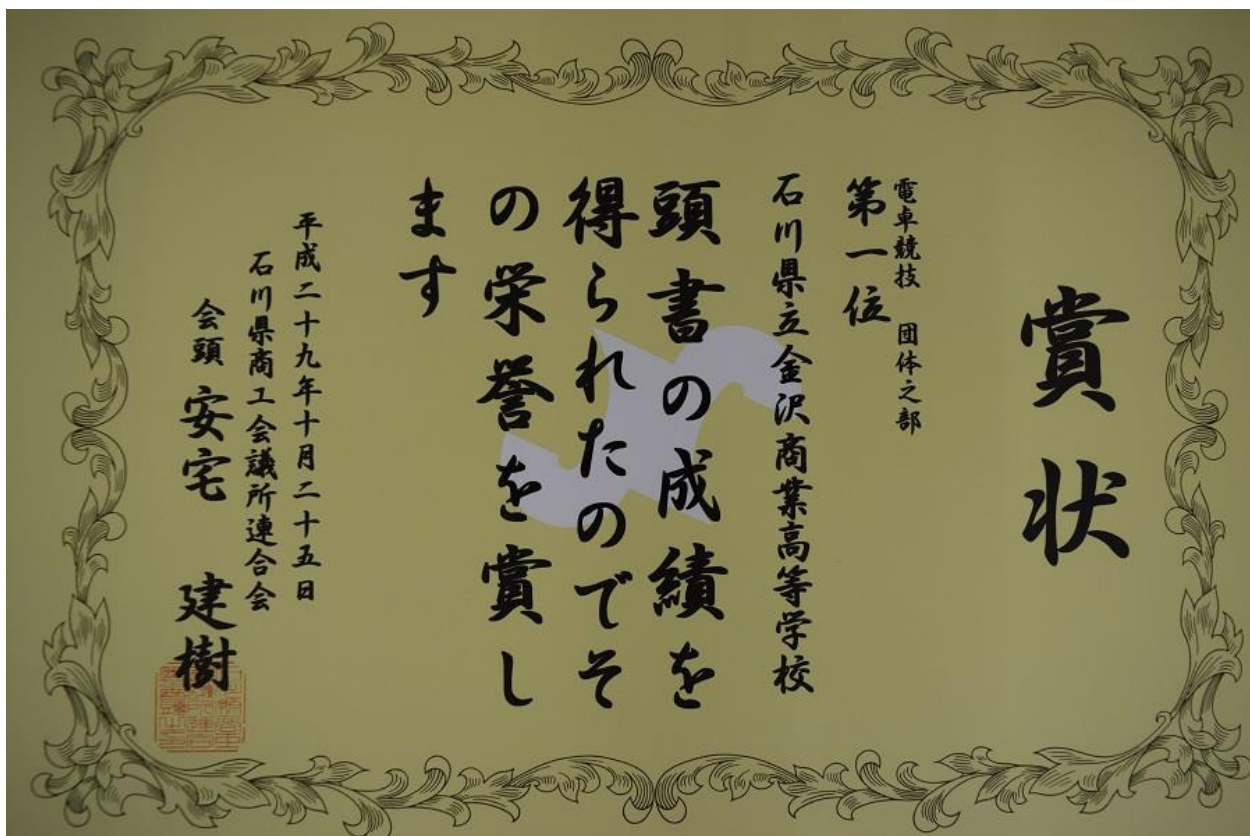 賞状
電卓競技 団体之部
第一位
石川県立金沢商業高等学校
頭書の成績を
得られたのでそ
の栄誉を賞し
ます
平成二十九年十月二十五日
石川県商工会議所連合会
会頭 安宅 建樹